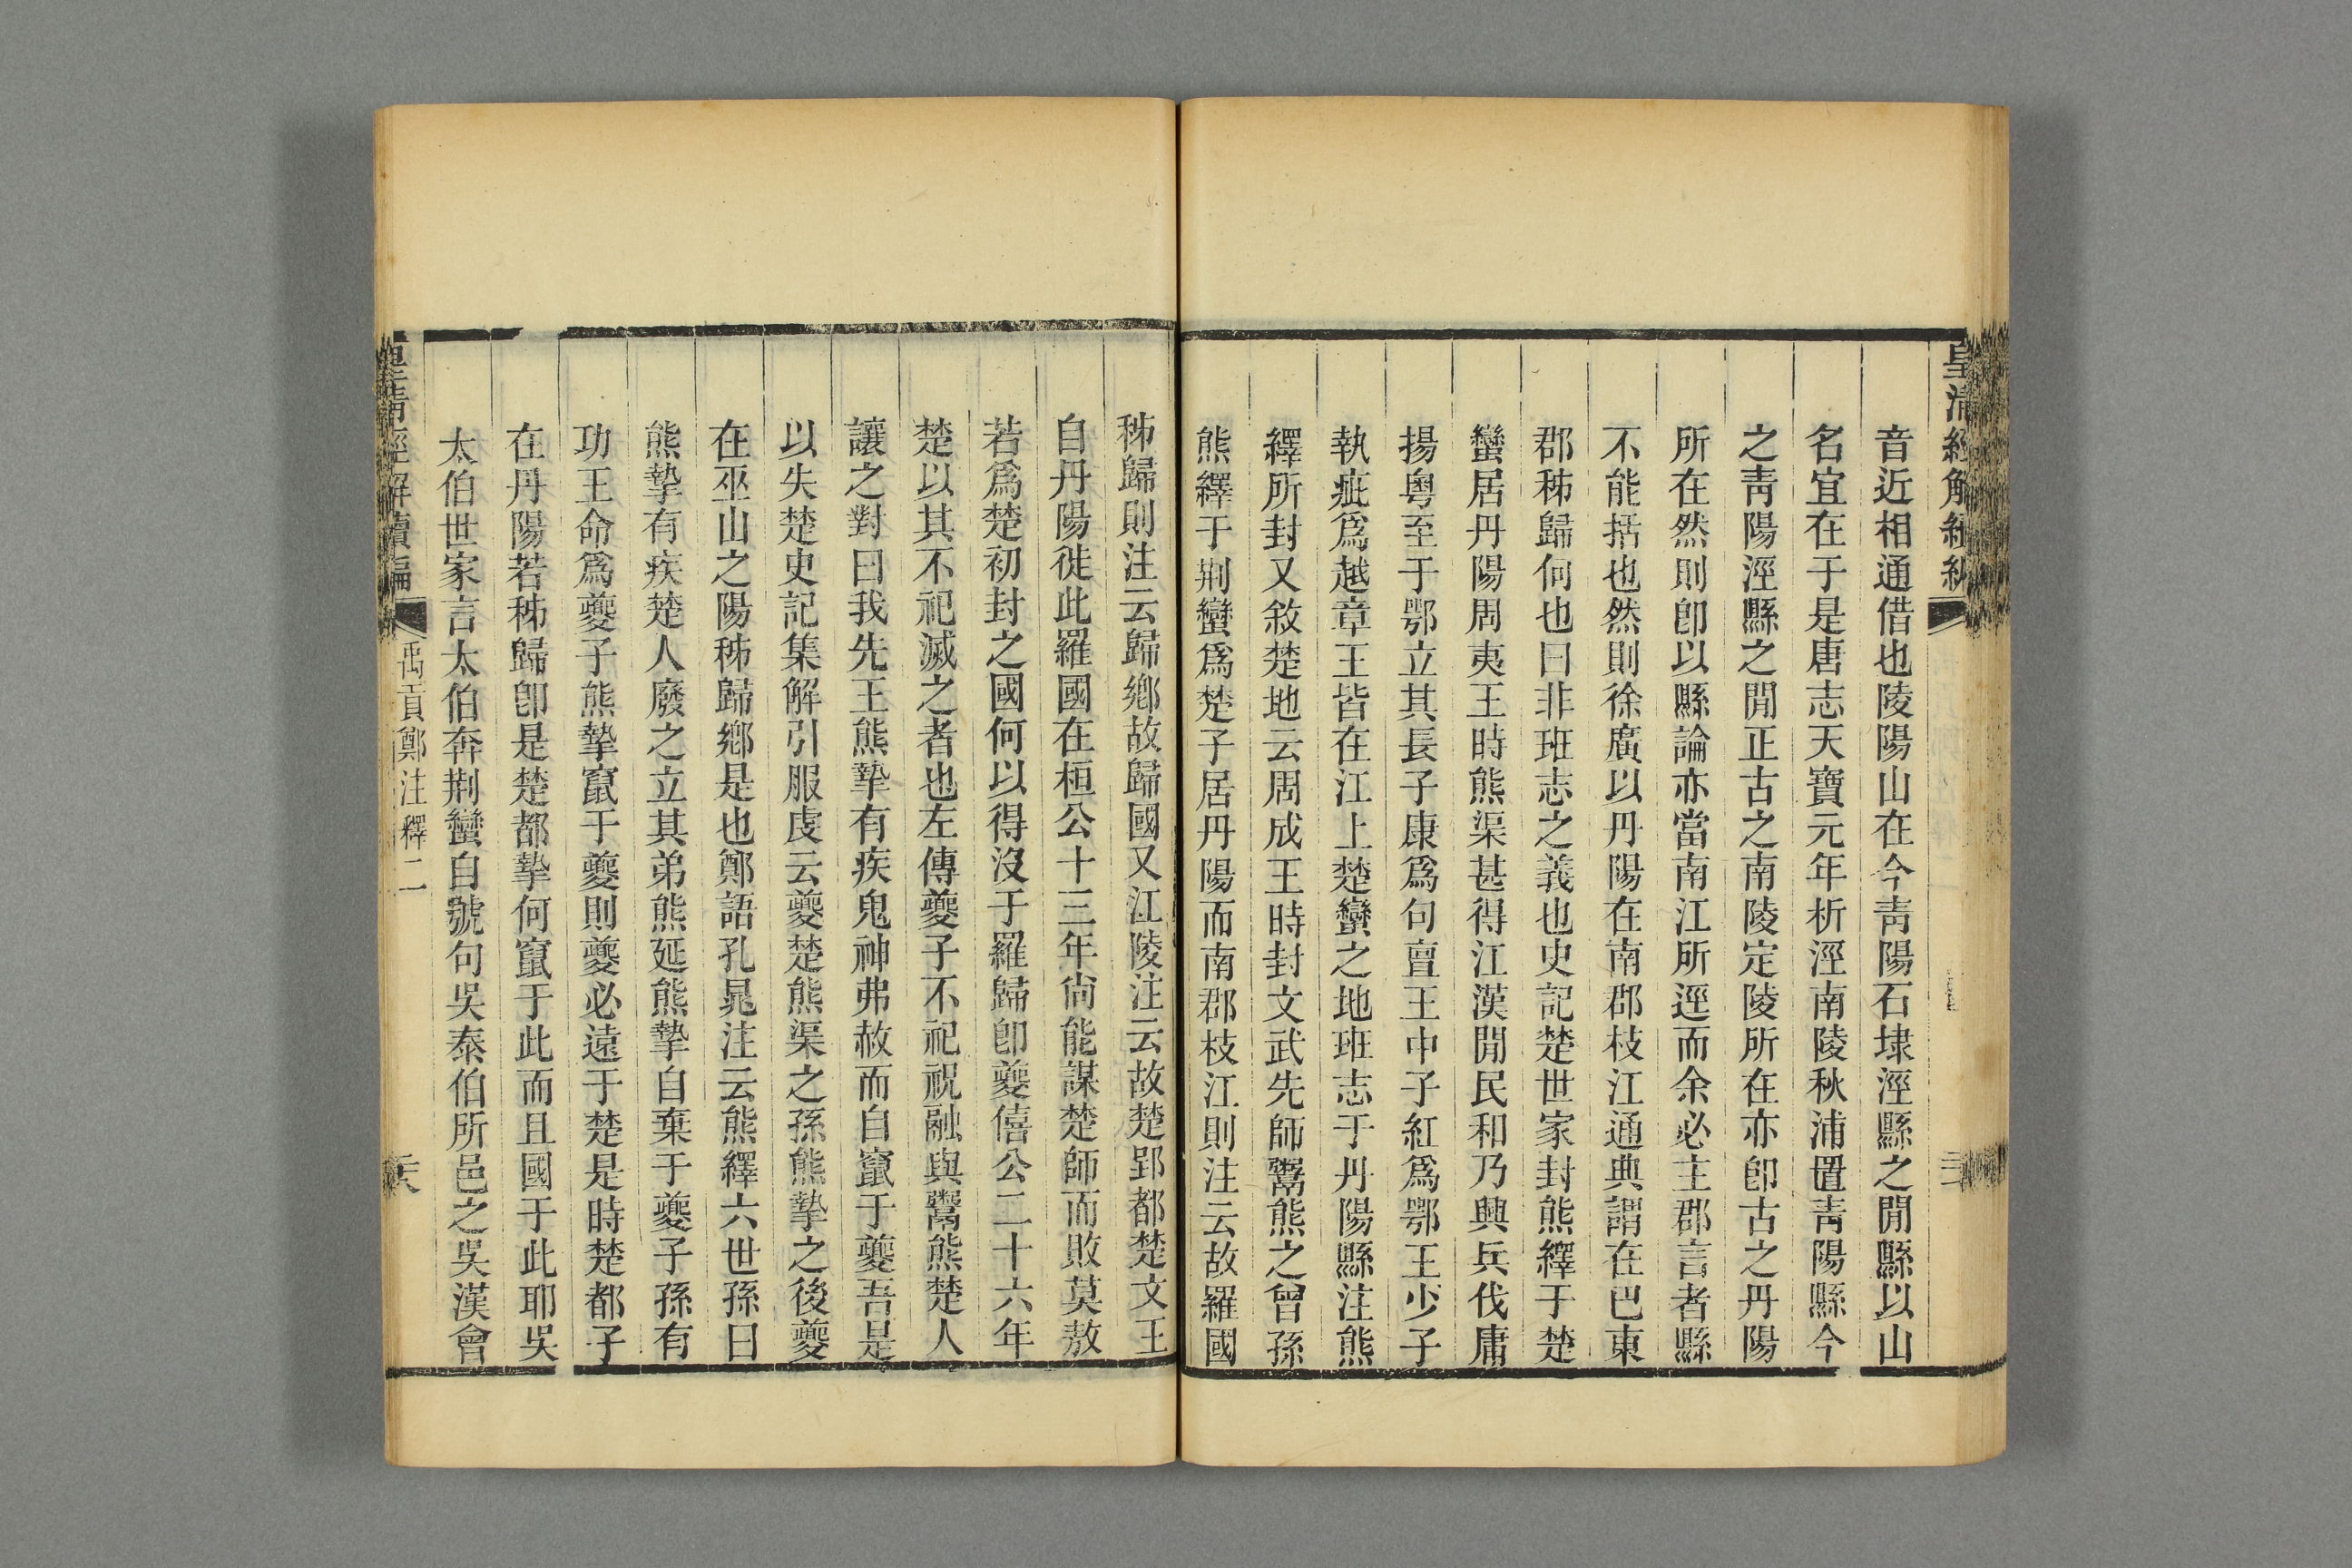 皇清經解續編
音近相通借也陵陽山在今靑陽石埭涇縣之閒縣以山
名宜在于是唐志天寶元年析涇南陵秋浦置靑陽縣今
之靑陽涇縣之閒正古之南陵定陵所在亦卽古之丹陽
所在然則卽以縣論亦當南江所逕而余必主郡言者縣
不能括也然則徐廣以丹陽在南郡枝江通典謂在巴東
郡秭歸何也曰非班志之義也史記楚世家封熊繹于楚
蠻居丹陽周夷王時熊渠甚得江漢閒民和乃興兵伐庸
揚粵至于鄂立其長子康爲句亶王中子紅爲鄂王少子
執疵爲越章王皆在江上楚蠻之地班志于丹陽縣注熊
繹所封又敘楚地云周成王時封文武先師鬻熊之曾孫
熊繹于荆蠻爲楚子居丹陽而南郡枝江則注云故羅國
秭歸則注云歸鄉故歸國又江陵注云故楚郢都楚文王
自丹陽徙此羅國在桓公十三年尙能謀楚師而敗莫敖
若爲楚初封之國何以得沒于羅歸卽夔僖公二十六年
楚以其不祀滅之者也左傳夔子不祀祝融與鬻熊楚人
讓之對曰我先王熊摯有疾鬼神弗赦而自竄于夔吾是
以失楚史記集解引服虔云夔楚熊渠之孫熊摯之後夔
在巫山之陽秭歸鄉是也鄭語孔晁注云熊繹六世孫曰
熊摯有疾楚人廢之立其弟熊延熊摯自棄于夔子孫有
功王命爲夔子熊摯竄于夔則夔必遠于楚是時楚都子
在丹陽若秭歸卽是楚都摯何竄于此而且國于此耶吳
太伯世家言太伯奔荆蠻自號句吳泰伯所邑之吳漢會
皇淸經解續編
禹貢鄭注釋二